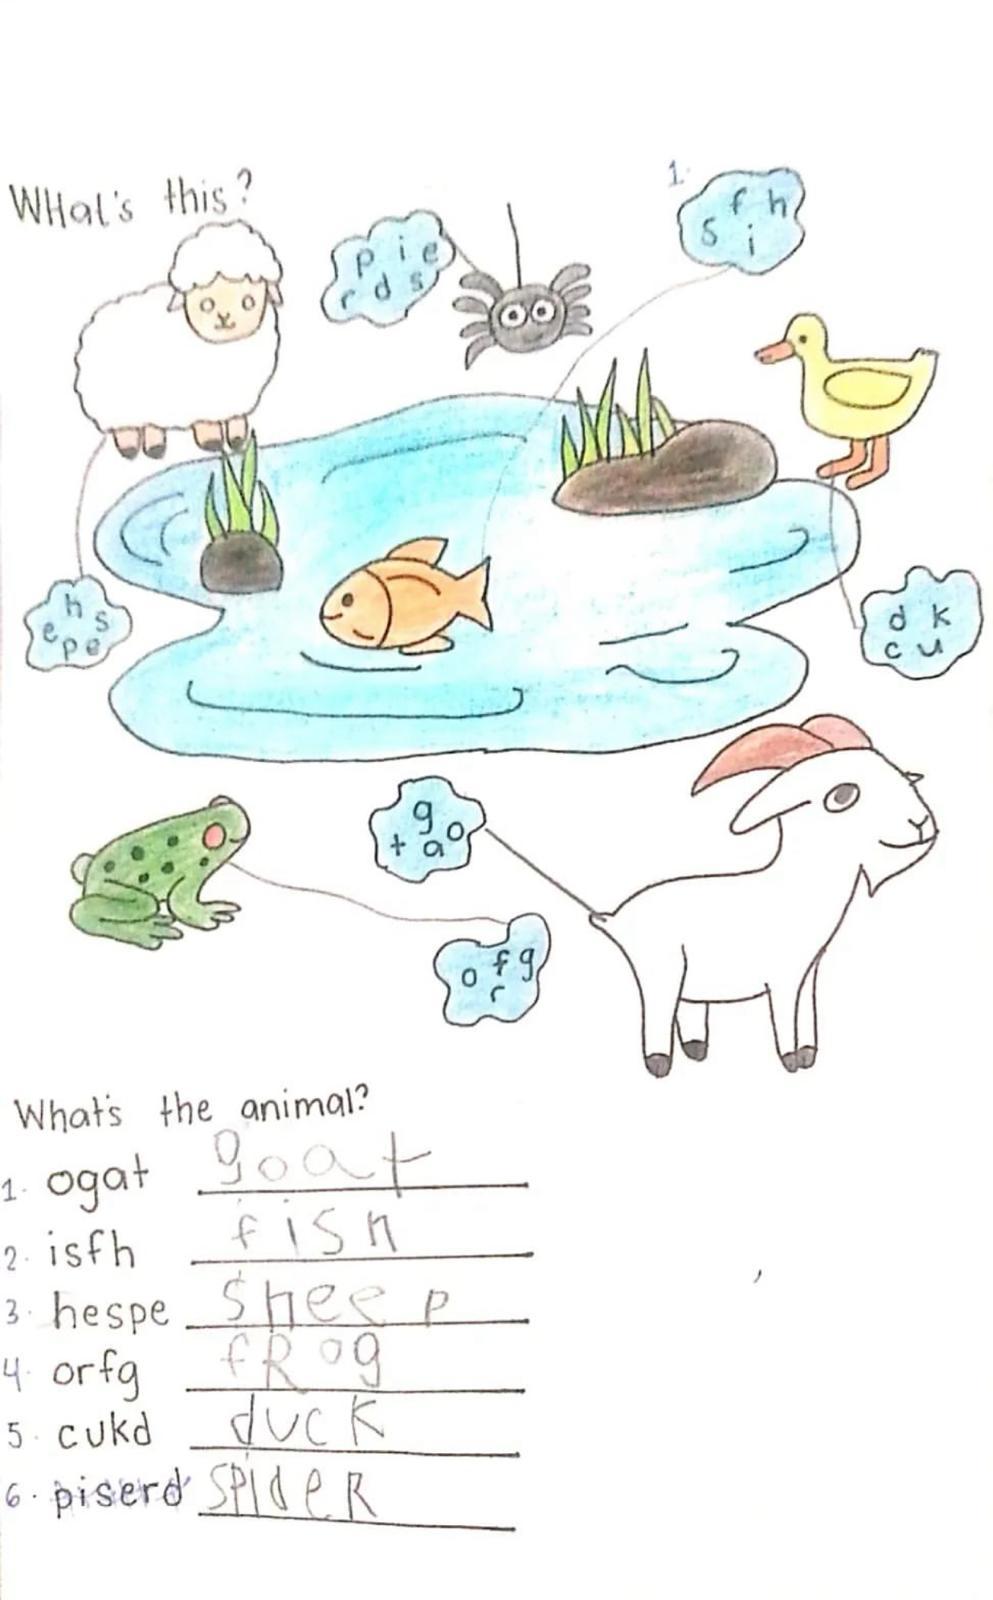 What's this?
p i e
r d s
1.
s f h
i
h s
e p e
d k
c u
g
t a o
o f g
r
What's the animal?
1. ogat goat
2. isfh fish
3. hespe sheep
4. orfg fRog
5. cukd duck
6. piserd spideR